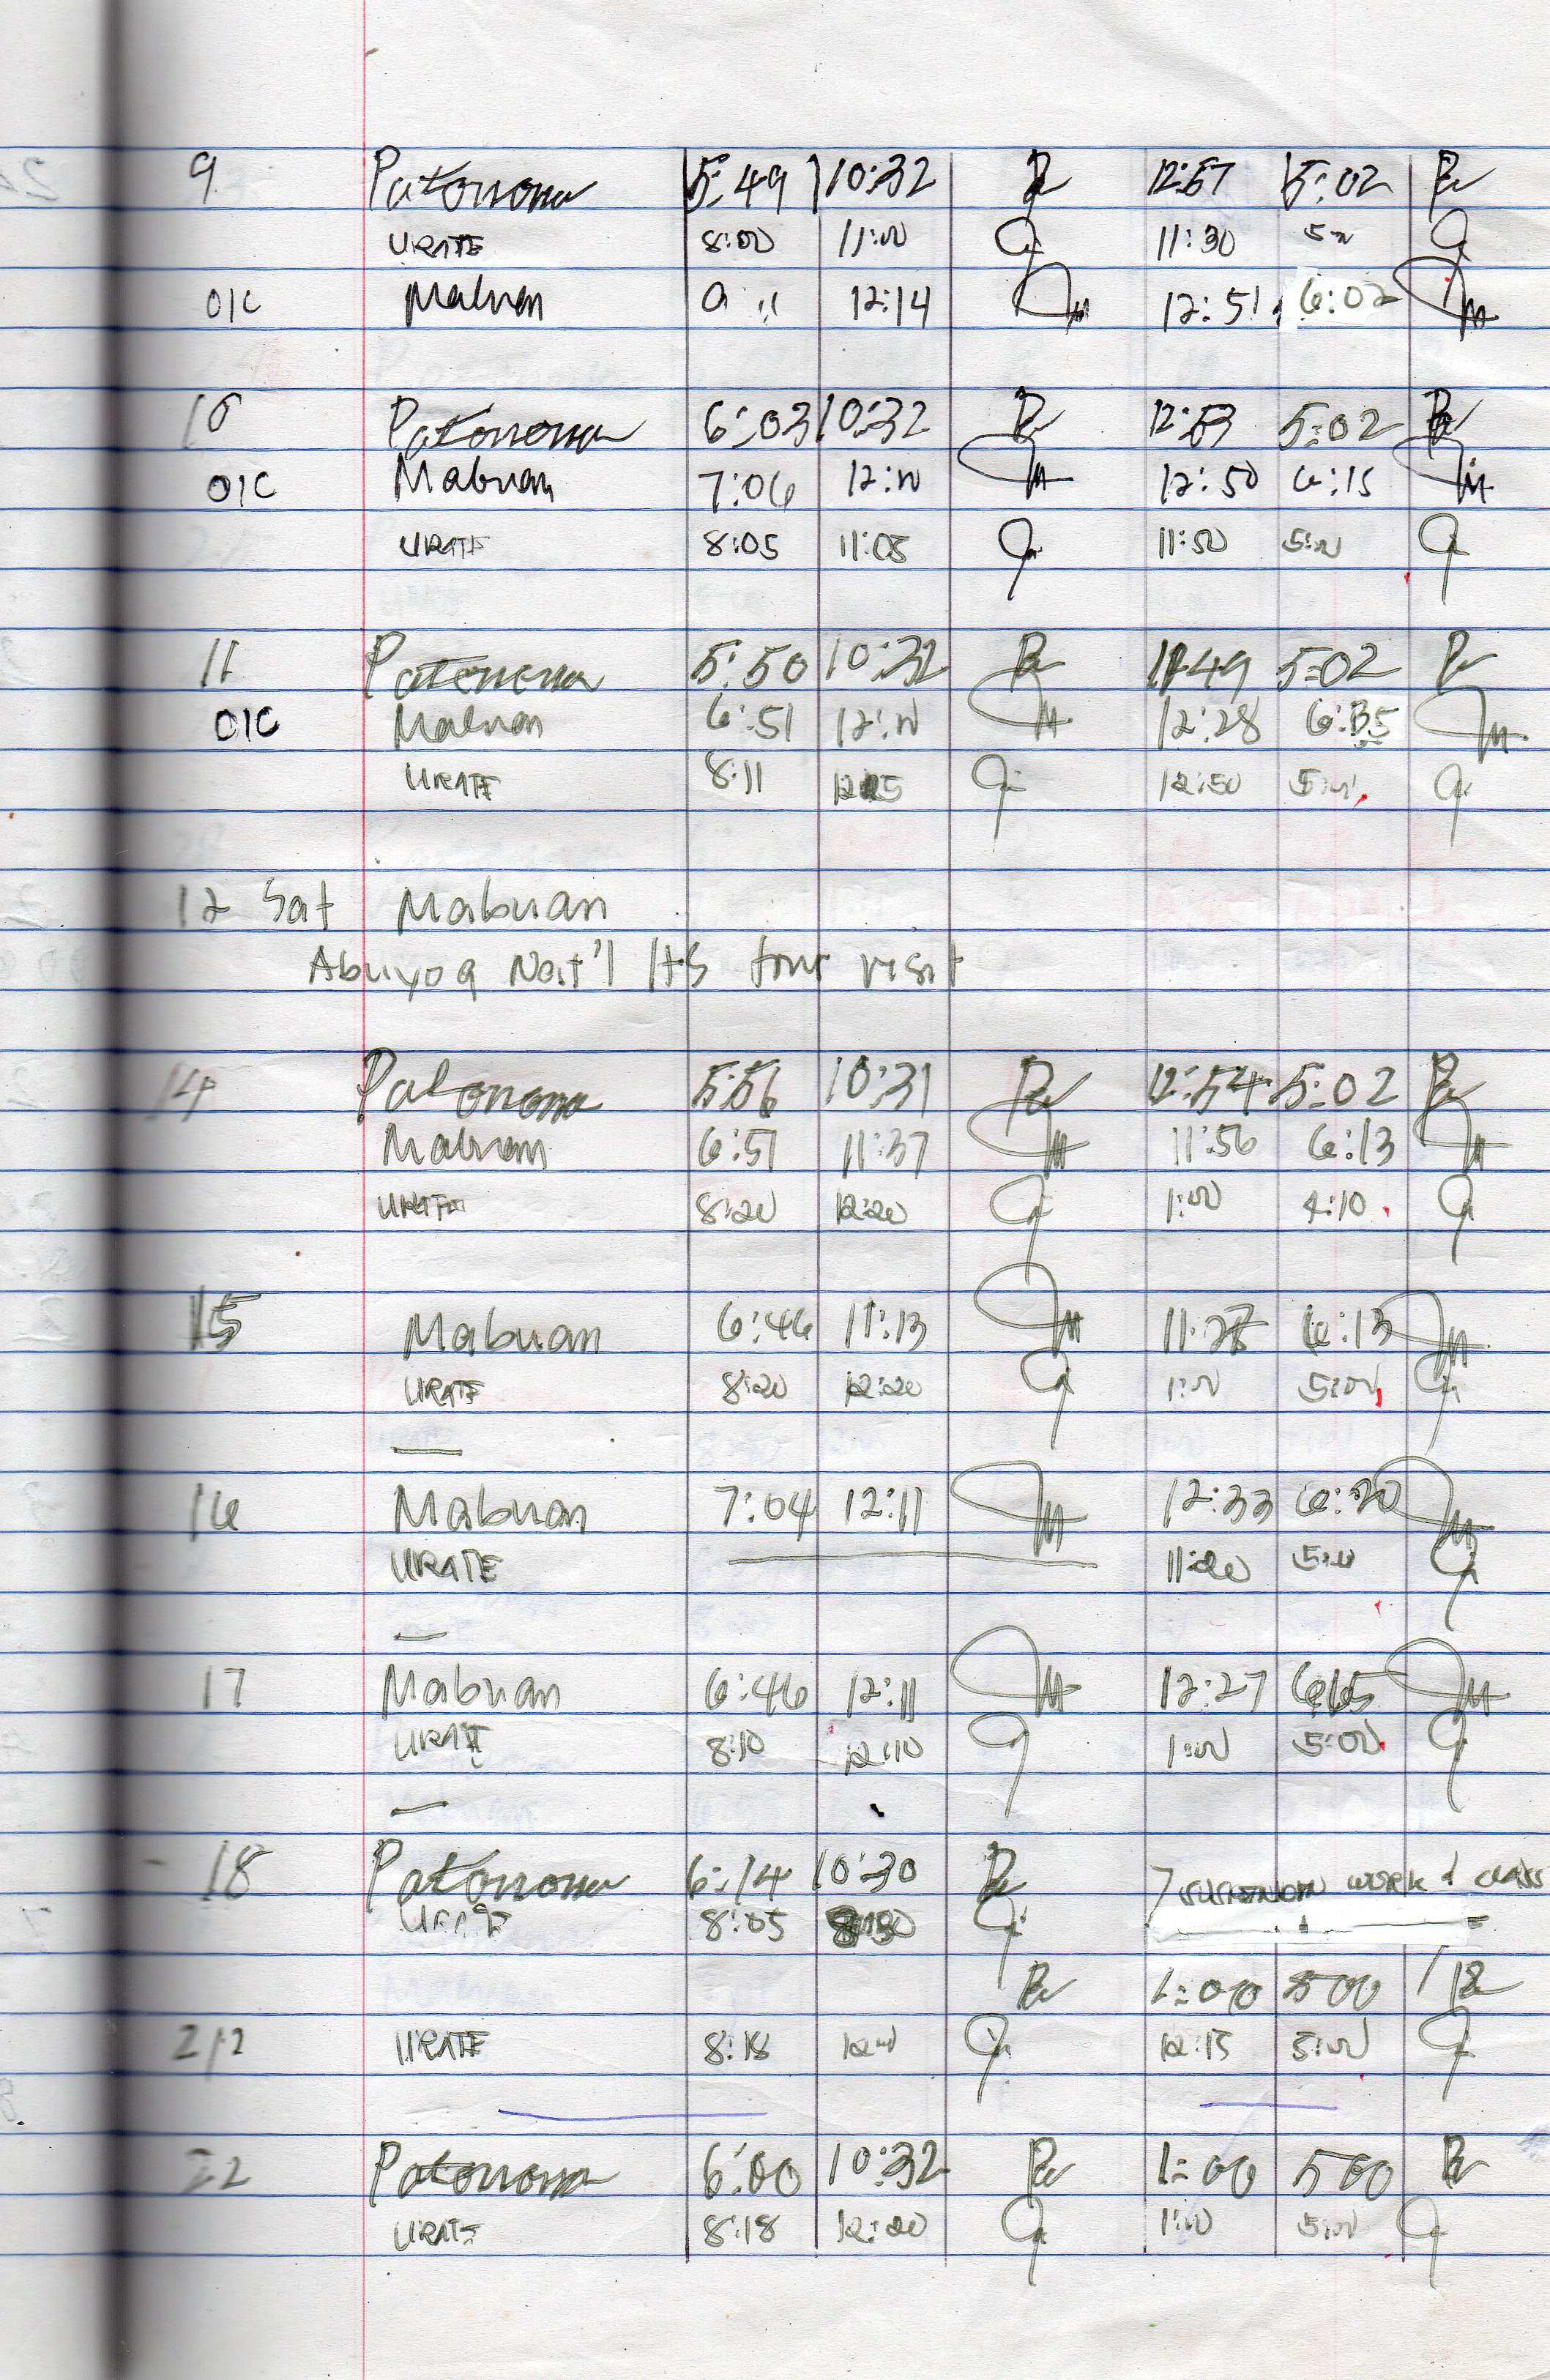 9 Patonona 5:49 10:32 12:57 5:02
URATE 8:00 11:00 11:30 5:00
OIC Mabuan 12:14 12:51 6:02
10 Patonona 6:03 10:32 12:53 5:02
OIC Mabuan 7:06 12:00 12:50 6:15
URATE 8:05 11:05 11:50 5:00
11 Patonona 5:50 10:32 5:02
OIC Mabuan 6:51 12:00 12:28 6:35
URATE 8:11 12:50 5:00
12 Sat Mabuan
Abuyog Nat'l HS tour visit
14 Patonona 5:56 10:31 12:54 5:02
Mabuan 6:51 11:37 11:56 6:13
URATE 8:20 12:20 1:00 4:10
15 Mabuan 6:46 11:13 6:13
URATE 8:20 12:20 1:00 5:00
16 Mabuan 7:04 12:11 12:33 6:30
URATE 11:20 5:00
17 Mabuan 6:46 12:11 12:27
URATE 8:10 12:10 1:00 5:00
18 Patonona 6:14 10:30 work & class
URATE 8:05
1:00 500
URATE 8:18 12:00 12:15 5:00
22 Patonona 6:00 10:32 1:00 500
URATE 8:18 12:20 1:00 5:00